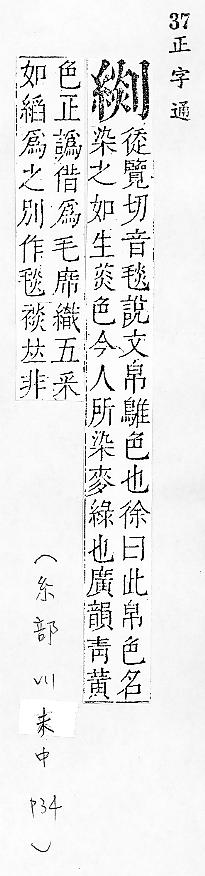 37 正字通
從覽切音毯說文帛騅色也徐曰此帛色名
染之如生菼色今人所染麥綠也廣韻靑黃
色正譌借爲毛席織五采
如縚爲之別作毯裧非
（糸部 未中 P34）